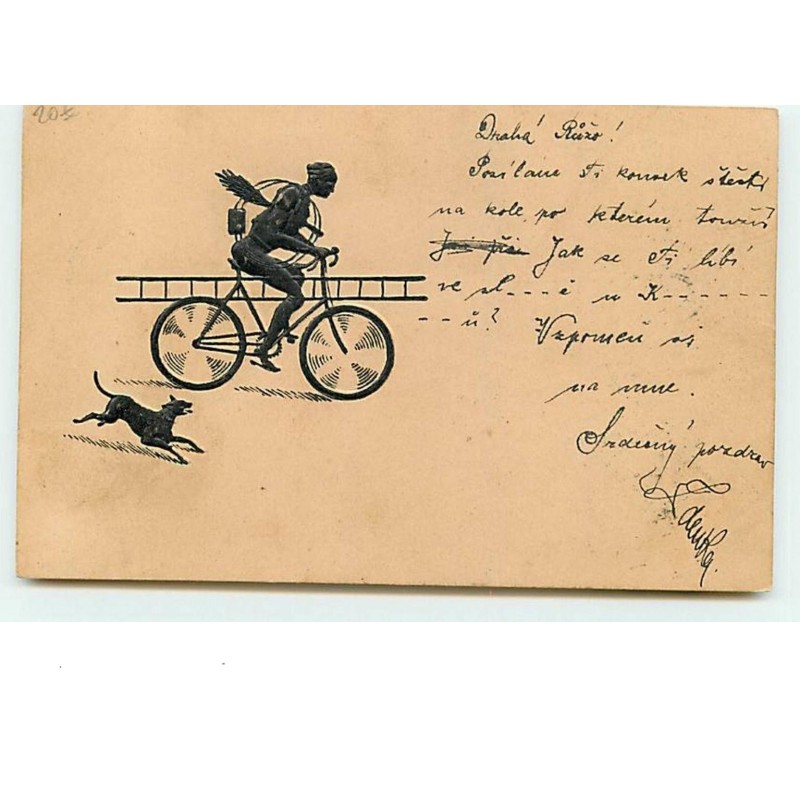 20 x
Drahá Růžo!
Posílám Ti kousek štěstí
na kole, po kterém toužíš
Jak se Ti líbí
ve sl---ě u K------
--ů? Vzpomeň si
na mne.
Srdečný pozdrav
Zdenka.